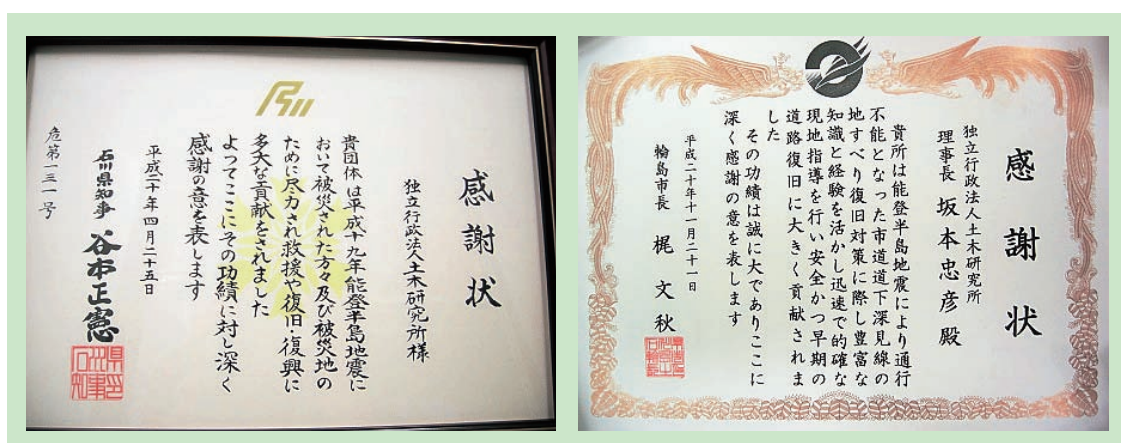 感謝状
独立行政法人土木研究所様
貴団体は平成十九年能登半島地震に
おいて被災された方々及び被災地の
ために尽力され救援や復旧・復興に
多大な貢献をされました
よってここにその功績に対し深く
感謝の意を表します
平成二十年四月二十五日
石川県知事 谷本正憲
危第一三一号
感謝状
独立行政法人土木研究所
理事長 坂本忠彦 殿
貴所は能登半島地震により通行
不能となった市道道下深見線の
地すべり復旧対策に際し豊富な
知識と経験を活かし迅速で的確な
現地指導を行い安全かつ早期の
道路復旧に大きく貢献されま
した
その功績は誠に大でありここに
深く感謝の意を表します
平成二十年十一月二十一日
輪島市長 梶文秋